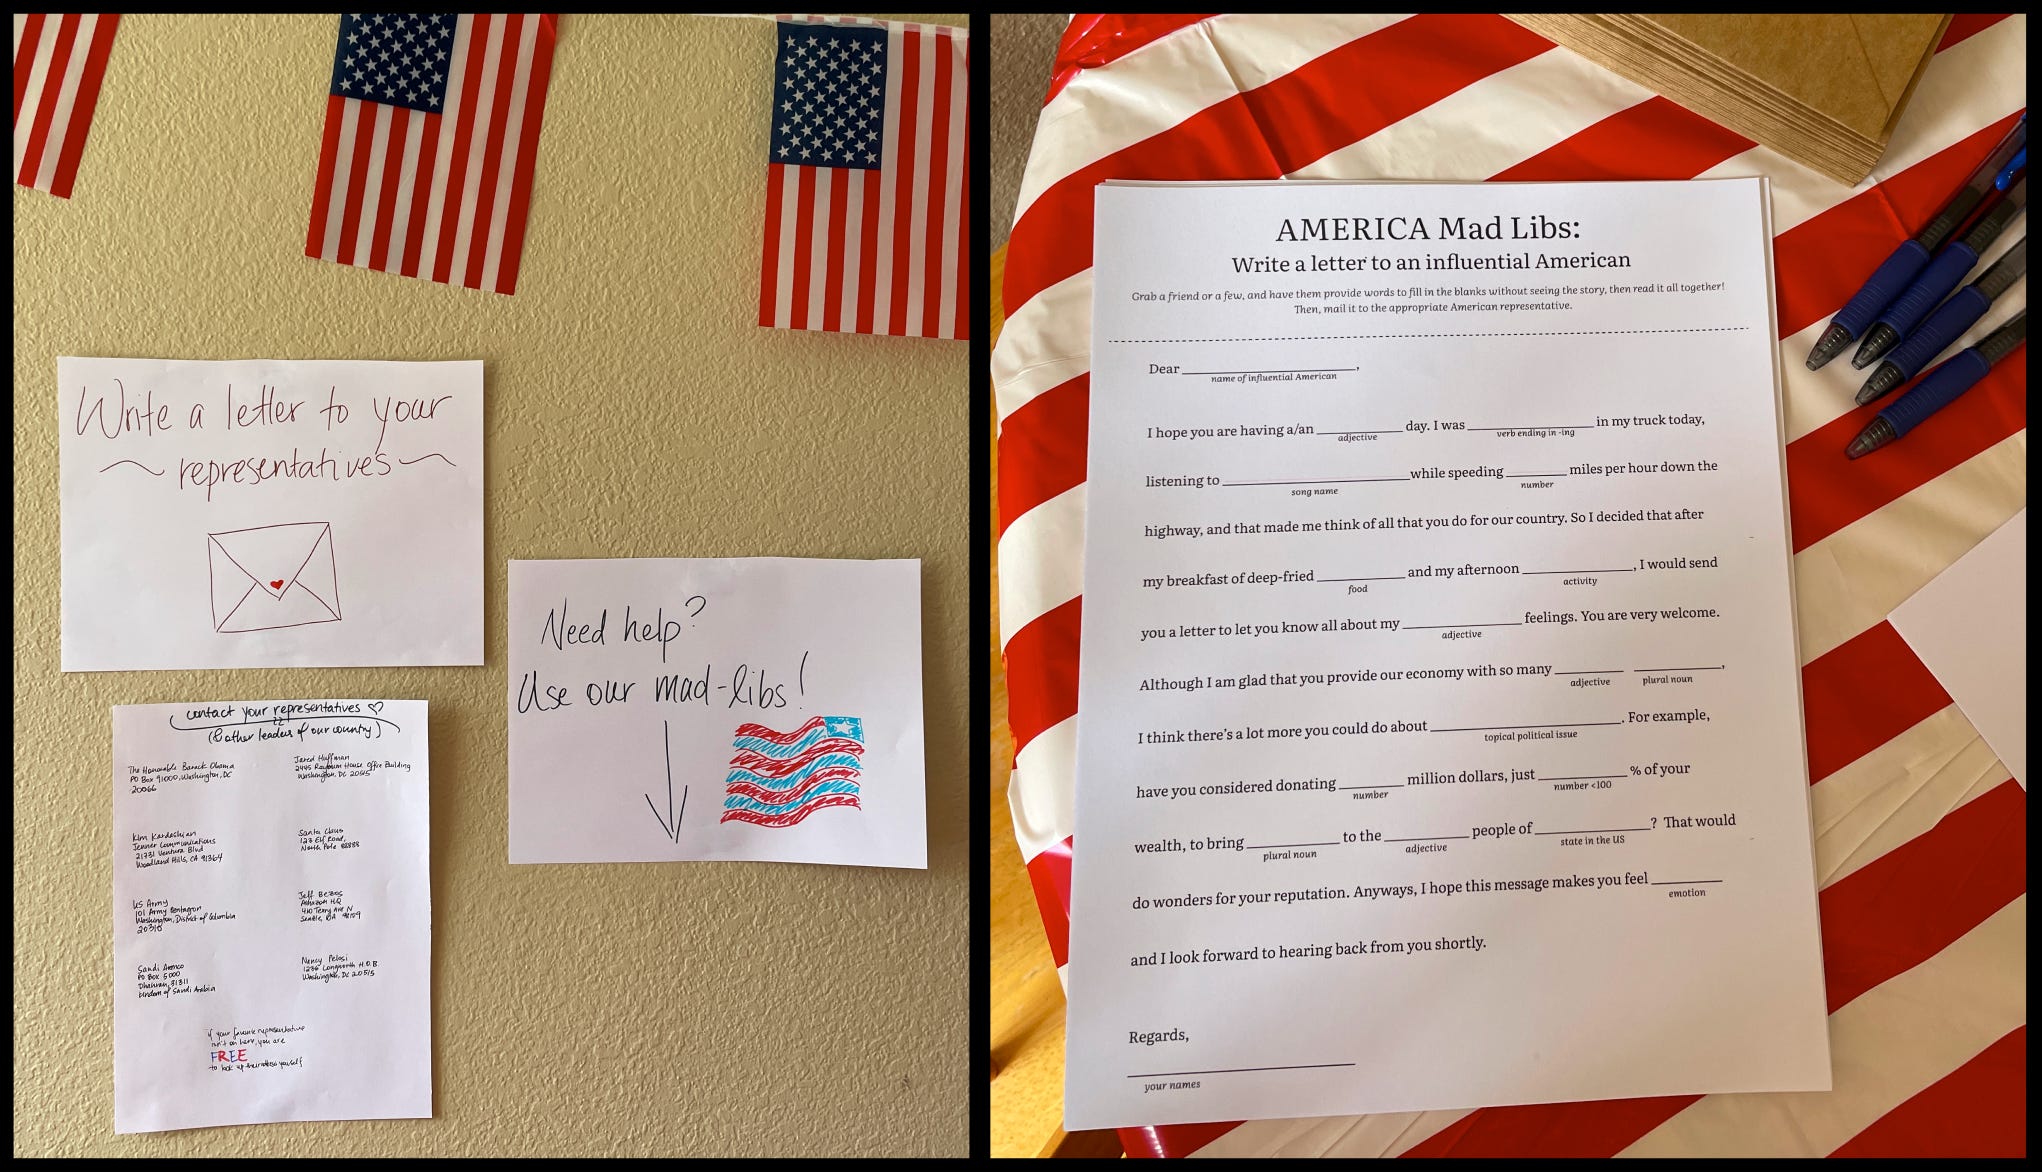 Write a letter to your
representatives
Need help?
Use our mad-libs!
contact your representatives
(& other leaders of our country)
The Honorable Barack Obama
PO Box 91000, Washington, DC
20066
Jared Huffman
2445 Rayburn House Office Building
Washington, DC 20515
Kim Kardashian
Jenner Communications
21731 Ventura Blvd
Woodland Hills, CA 91364
Santa Claus
123 Elf Road,
North Pole 88888
US Army
101 Army Pentagon
Washington, District of Columbia
20310
Jeff Bezos
Amazon HQ
410 Terry Ave N
Seattle, WA 98109
Saudi Aramco
PO Box 5000
Dhahran, 31311
of Saudi Arabia
Nancy Pelosi
1236 Longworth H.O.B.
Washington, DC 20515
if your favorite representative
isn't on here, you are
FREE
to look up their address yourself
AMERICA Mad Libs:
Write a letter to an influential American
Grab a friend or a few, and have them provide words to fill in the blanks without seeing the story, then read it all together!
Then, mail it to the appropriate American representative.
Dear ,
name of influential American
I hope you are having a/an day. I was in my truck today,
adjective verb ending in -ing
listening to while speeding miles per hour down the
song name number
highway, and that made me think of all that you do for our country. So I decided that after
my breakfast of deep-fried and my afternoon , I would send
food activity
you a letter to let you know all about my feelings. You are very welcome.
adjective
Although I am glad that you provide our economy with so many ,
adjective plural noun
I think there's a lot more you could do about . For example,
topical political issue
have you considered donating million dollars, just % of your
number number <100
wealth, to bring to the people of ? That would
plural noun adjective state in the US
do wonders for your reputation. Anyways, I hope this message makes you feel
emotion
and I look forward to hearing back from you shortly.
Regards,
your names